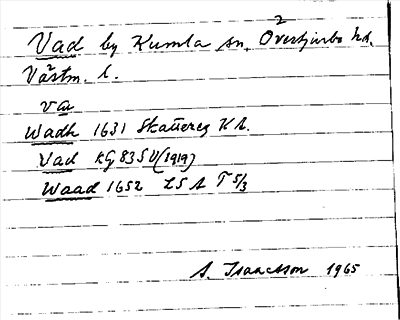 Vad by Kumla sn. Övertjurbo hd.
Västm. l.
va
Wadh 1631 Skattereg KA.
Vad KG 83 SV (1919)
Waad 1652 LSA T 5/3
A. Isaacsson 1965